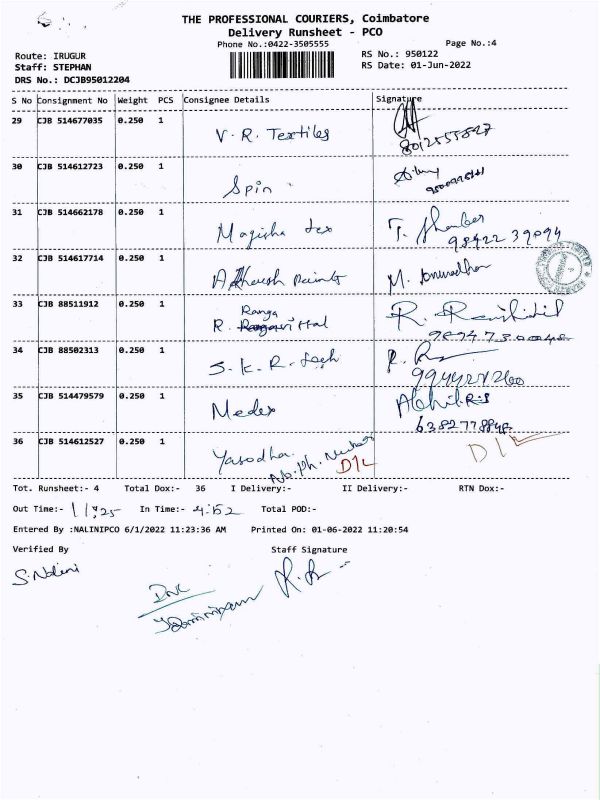 THE PROFESSIONAL COURIERS, Coimbatore
Delivery Runsheet - PCO
Phone No.:0422-3505555
Page No.:4
Route: IRUGUR
RS No.: 950122
Staff: STEPHAN
RS Date: 01-Jun-2022
DRS No.: DCJB95012204
S No Consignment No Weight PCS Consignee Details Signature
29 CJB 514677035 0.250 1 V. R. Textiles
30 CJB 514612723 0.250 1 Spin
31 CJB 514662178 0.250 1 Magisha tex
98422 39094
32 CJB 514617714 0.250 1 paints M.
33 CJB 88511912 0.250 1 Ranga R.
R.
34 CJB 88502313 0.250 1 S. K. R. R.
35 CJB 514479579 0.250 1 Medex Abhil.R.S
36 CJB 514612527 0.250 1 Yasodha. D/L
No. Ph. Number D/L
Tot. Runsheet:- 4 Total Dox:- 36 I Delivery:- II Delivery:- RTN Dox:-
Out Time:- 11:25 In Time:- 4:52 Total POD:-
Entered By :NALINIPCO 6/1/2022 11:23:36 AM Printed On: 01-06-2022 11:20:54
Verified By Staff Signature
S. Nalini